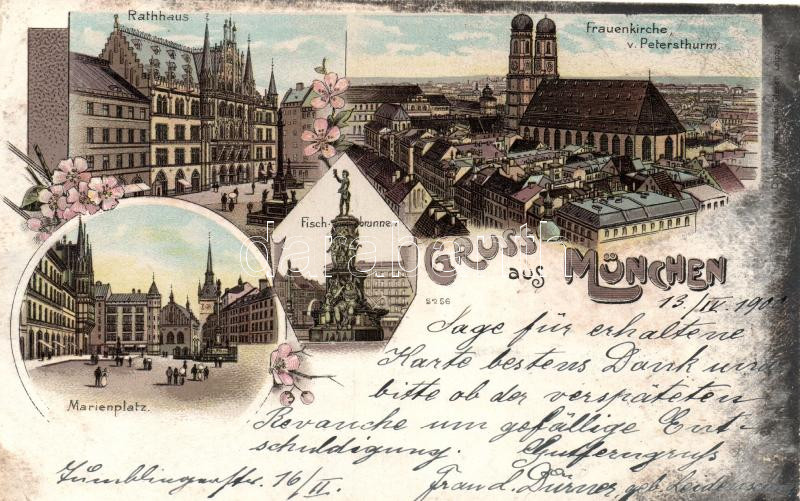 Rathhaus
Frauenkirche,
v. Petersthurm.
Fisch-brunnen.
GRUSS
aus MÜNCHEN
5256
Marienplatz.
13/IV. 190
Sage für erhaltene
Karte bestens Dank und
bitte ob der verspäteten
Revanche um gefällige Ent-
schuldigung. Gutferngruß
Zumblingerstr. 16/II. Frau L. Dürner, geb.
darabanth.com